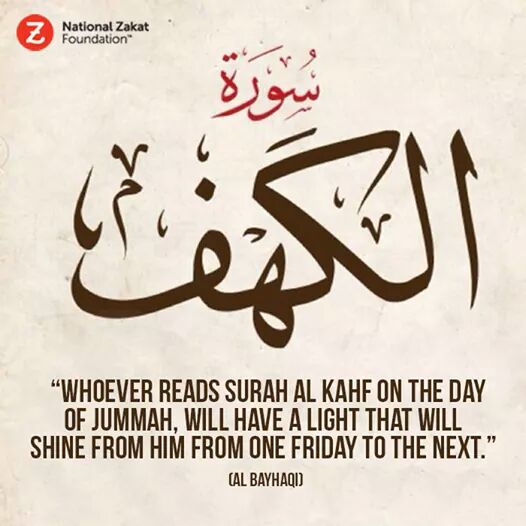 National Zakat
Foundation™
سُورَة
الكهف
“WHOEVER READS SURAH AL KAHF ON THE DAY
OF JUMMAH, WILL HAVE A LIGHT THAT WILL
SHINE FROM HIM FROM ONE FRIDAY TO THE NEXT.”
(AL BAYHAQI)